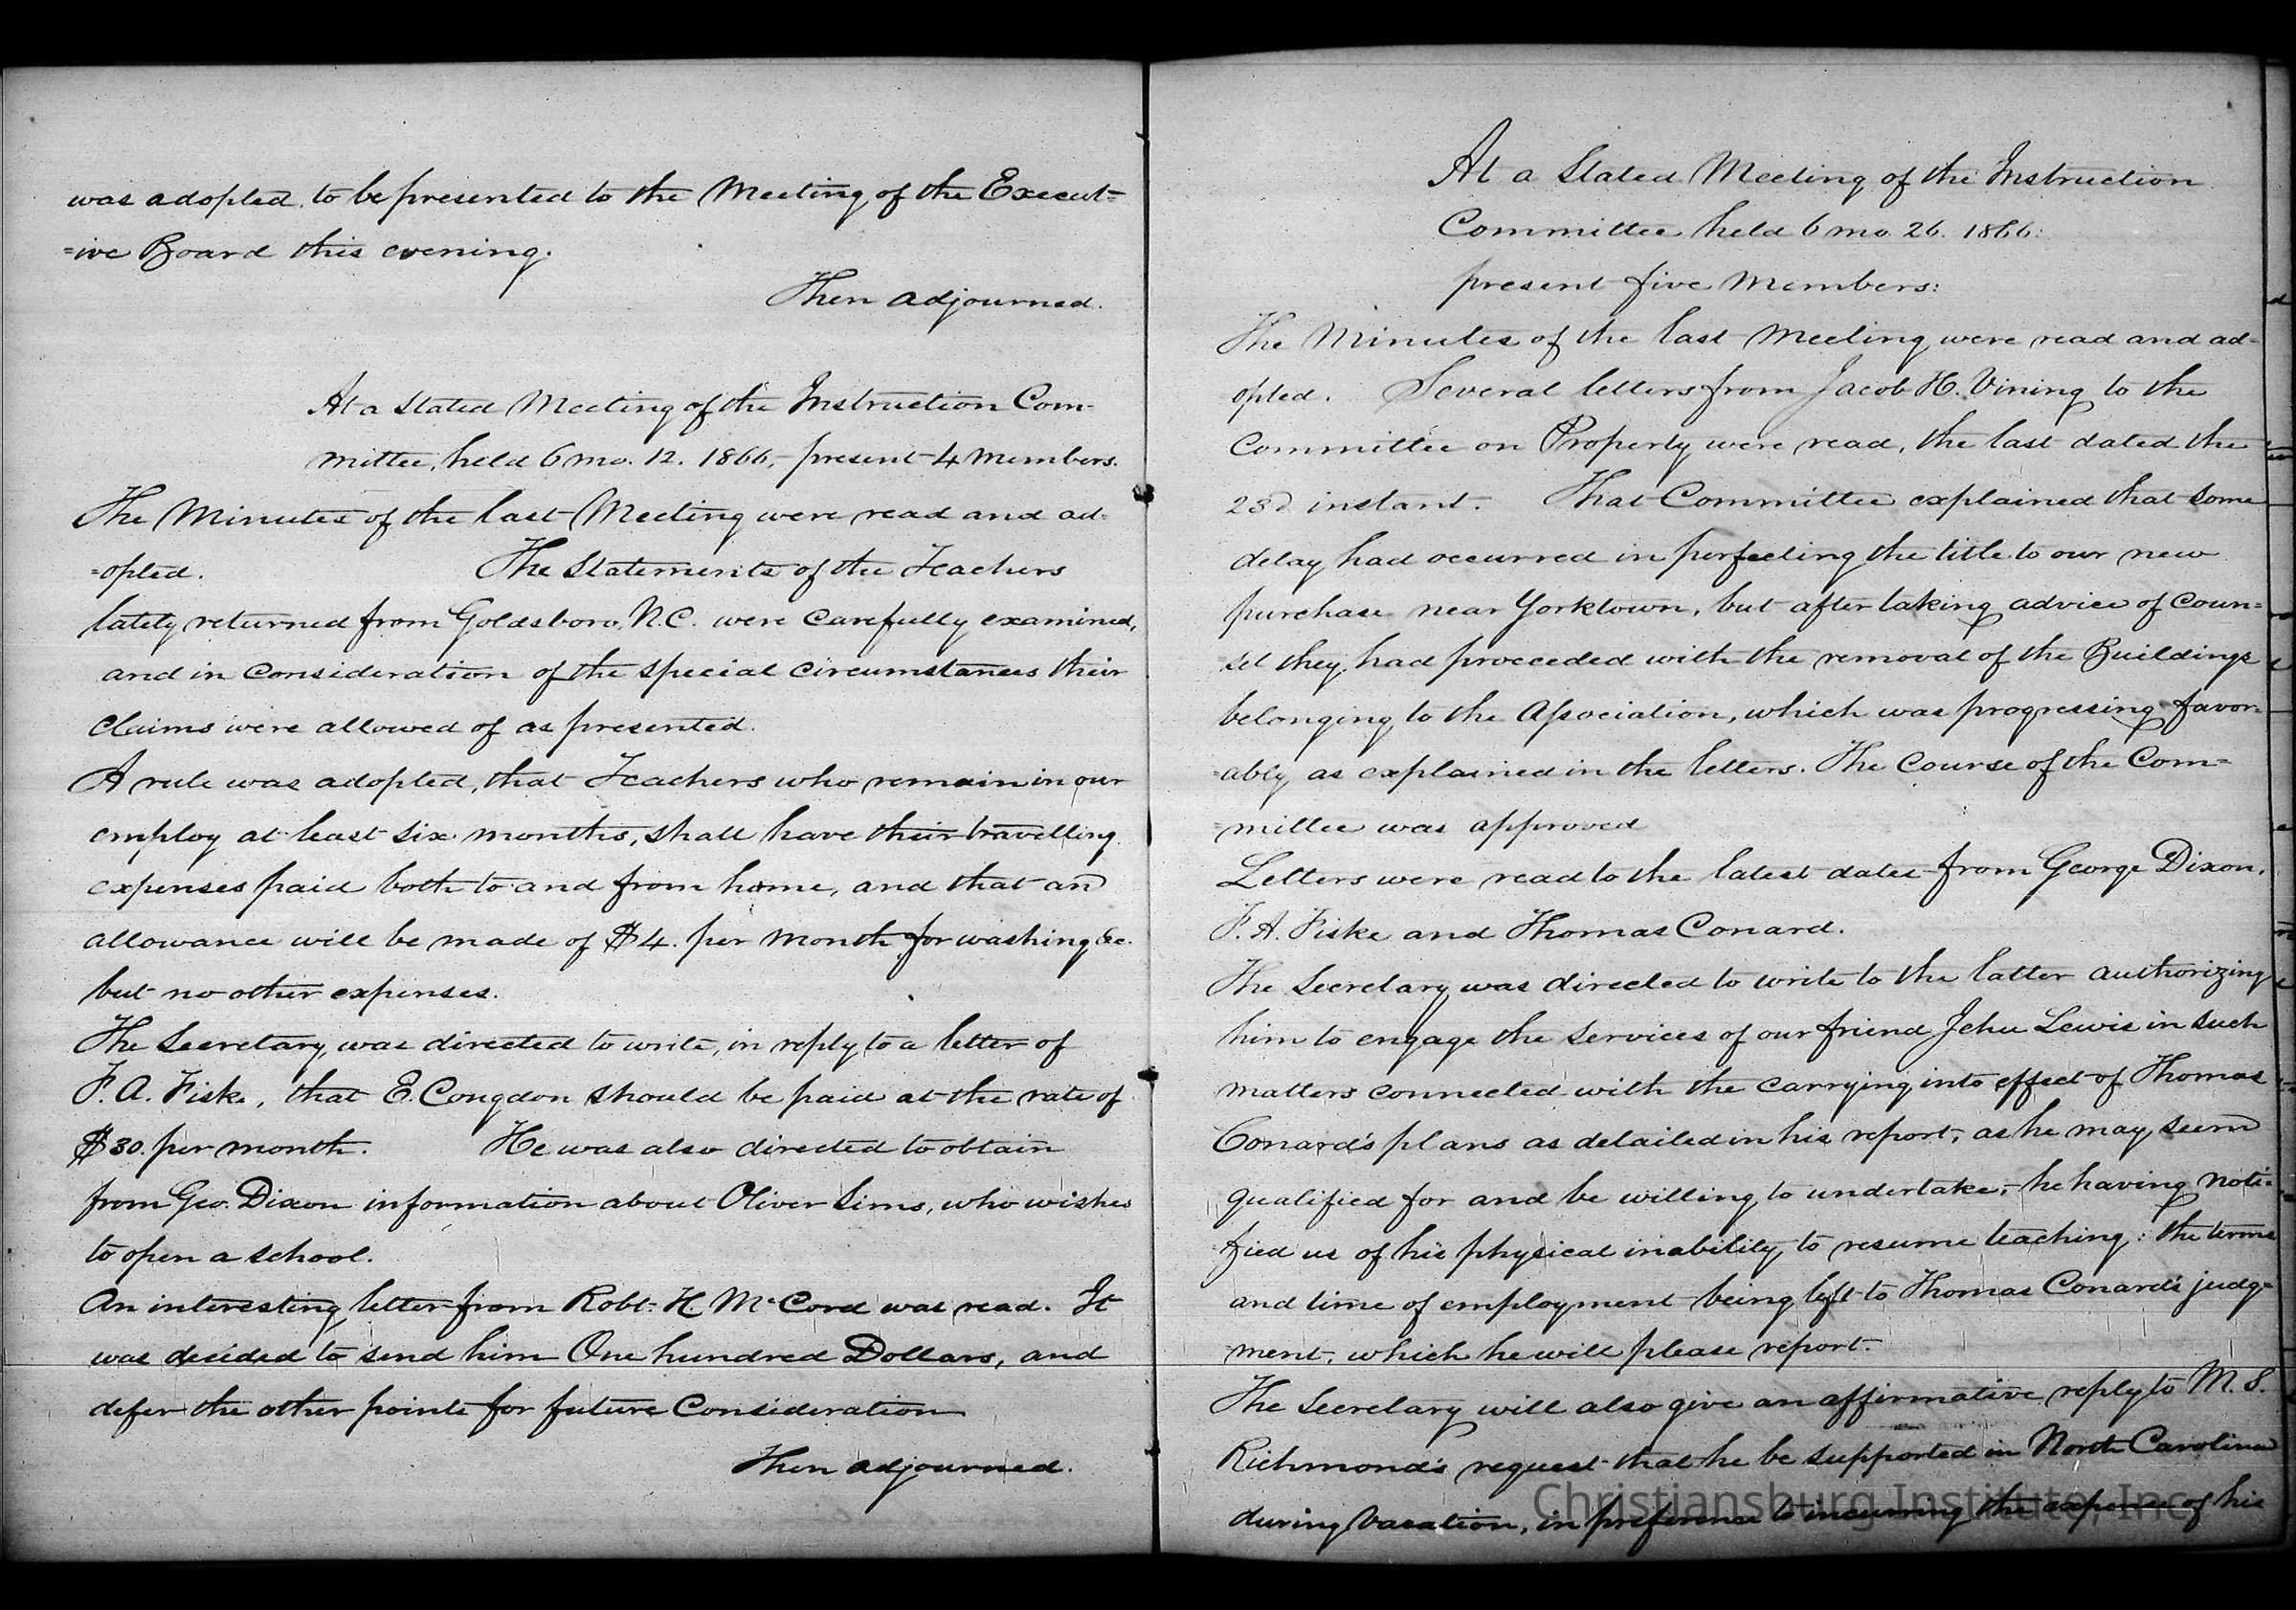 was adopted, to be presented to the Meeting of the Execut=
=ive Board this evening.
Then adjourned.
At a Stated Meeting of the Instruction Com-
mittee, held 6 mo. 12. 1866, - present 4 members.
The Minutes of the last Meeting were read and ad-
=opted. The Statements of the Teachers
lately returned from Goldsboro, N.C. were carefully examined,
and in consideration of the special circumstances their
claims were allowed of as presented.
A rule was adopted, that Teachers who remain in our
employ at least six months, shall have their travelling
expenses paid both to and from home, and that an
allowance will be made of $4. per month for washing &c.
but no other expenses.
The Secretary, was directed to write, in reply to a letter of
F. A. Fiske, that E. Congdon should be paid at the rate of
$30. per month. He was also directed to obtain
from Geo. Dixon information about Oliver Sims, who wishes
to open a school.
An interesting letter from Robt. H. McCord was read. It
was decided to send him One hundred Dollars, and
defer the other points for future Consideration
Then adjourned.
At a Stated Meeting of the Instruction
Committee held 6 mo. 26. 1866:
present five members:
The Minutes of the last Meeting were read and ad-
opted. Several letters from Jacob H. Vining to the
Committee on Property were read, the last dated the
23d instant. That Committee explained that some
delay had occurred in perfecting the title to our new
purchase near Yorktown, but after taking advice of coun=
sel they had proceeded with the removal of the Buildings
belonging to the Association, which was progressing favor=
=ably as explained in the letters. The Course of the Com=
=mittee was approved
Letters were read to the latest dates from George Dixon,
F. A. Fiske and Thomas Conard.
The Secretary was directed to write to the latter authorizing
him to engage the services of our friend Jehu Lewis in such
matters connected with the carrying into effect of Thomas
Conard's plans as detailed in his report, as he may seem
qualified for and be willing to undertake, - he having noti=
fied us of his physical inability to resume teaching: the terms
and time of employment being left to Thomas Conard's judg=
ment, which he will please report.
The Secretary will also give an affirmative reply to M. S.
Richmond's request that he be supported in North Carolina
during Vacation, in preference to incurring the expense of his
Christiansburg Institute, Inc.